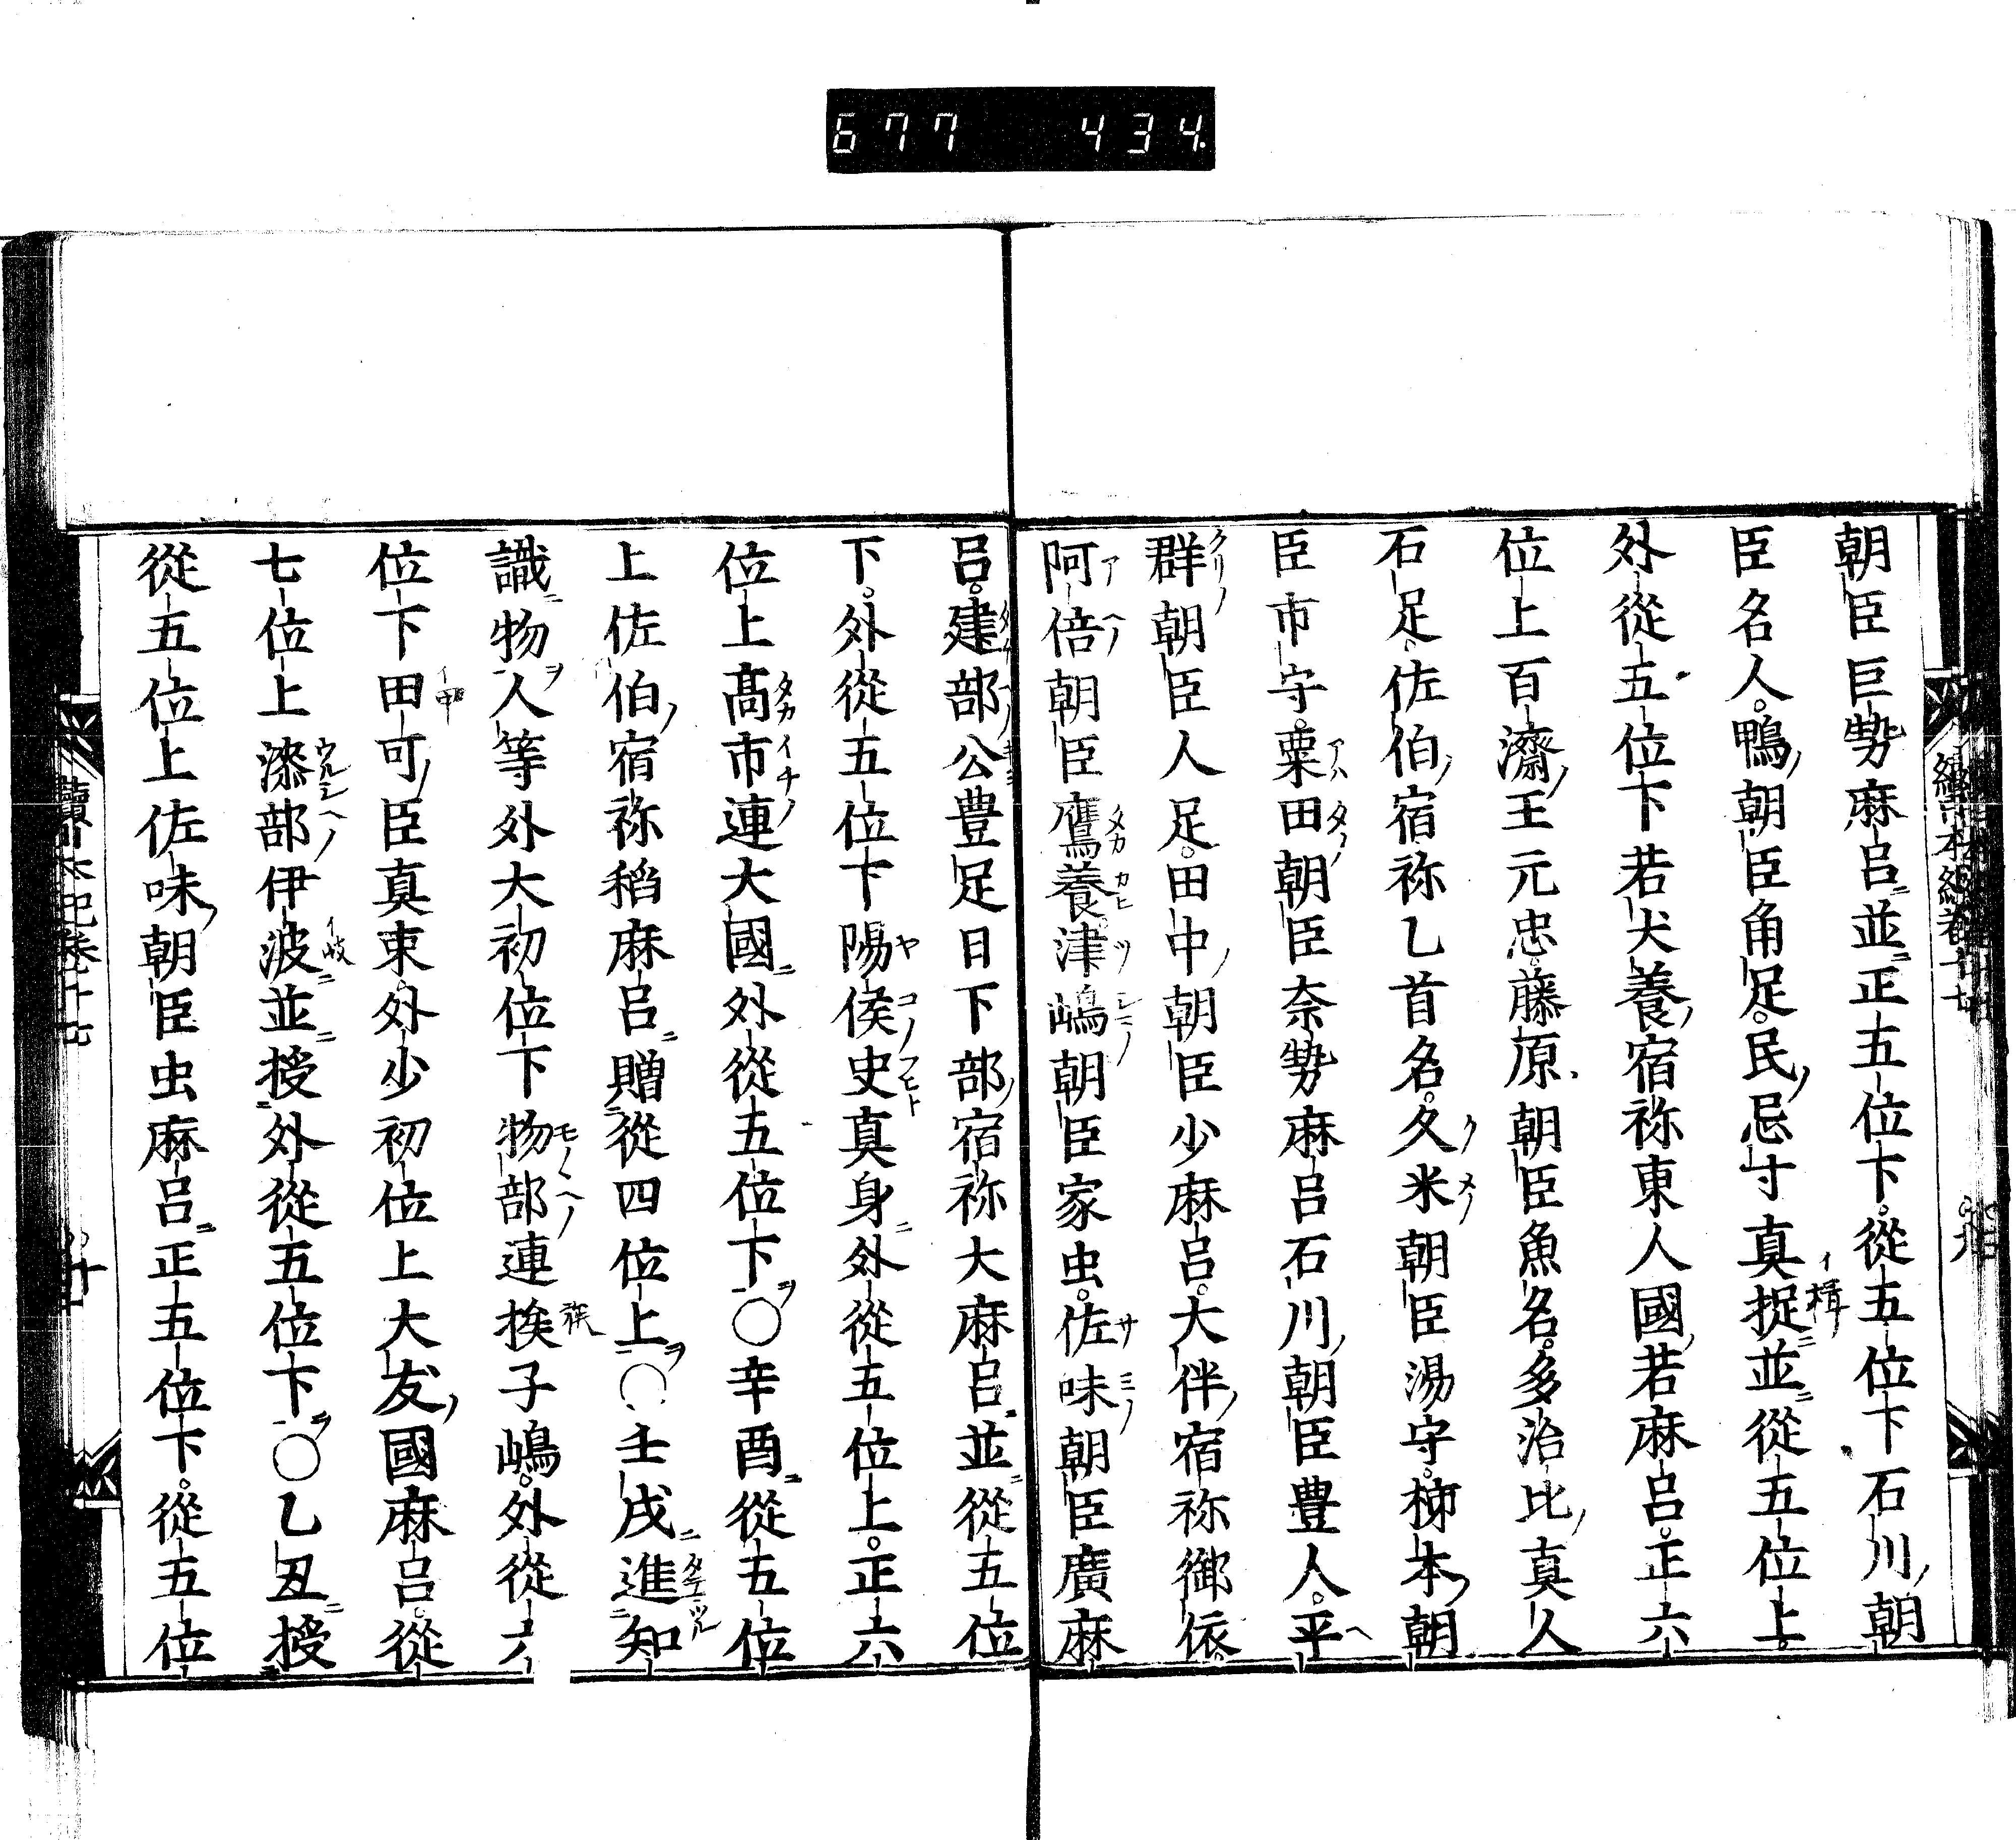 677 434
朝臣巨勢麻呂並正五位下。從五位下石川朝
臣名人。鴨朝臣角足。民忌寸真捉並從五位上。
外從五位下若犬養宿祢東人國若麻呂。正六
位上百濟王元忠。藤原朝臣魚名。多治比真人
石足。佐伯宿祢乙首名。久米朝臣湯守。柹本朝
臣市守。粟田朝臣奈勢麻呂石川朝臣豊人。平
群朝臣人足。田中朝臣少麻呂。大伴宿祢御依。
阿倍朝臣鷹養。津嶋朝臣家虫。佐味朝臣廣麻
呂。建部公豊足日下部宿祢大麻呂並從五位
下。外從五位下陽侯史真身外從五位上。正六
位上髙市連大國外從五位下○辛酉從五位
上佐伯宿祢稻麻呂贈從四位上○壬戌進知
識物人等外大初位下物部連族子嶋。外從六
位下田可臣真束。外少初位上大友國麻呂。從
七位上漆部伊波並授外從五位下○乙丑授
從五位上佐味朝臣虫麻呂正五位下。從五位